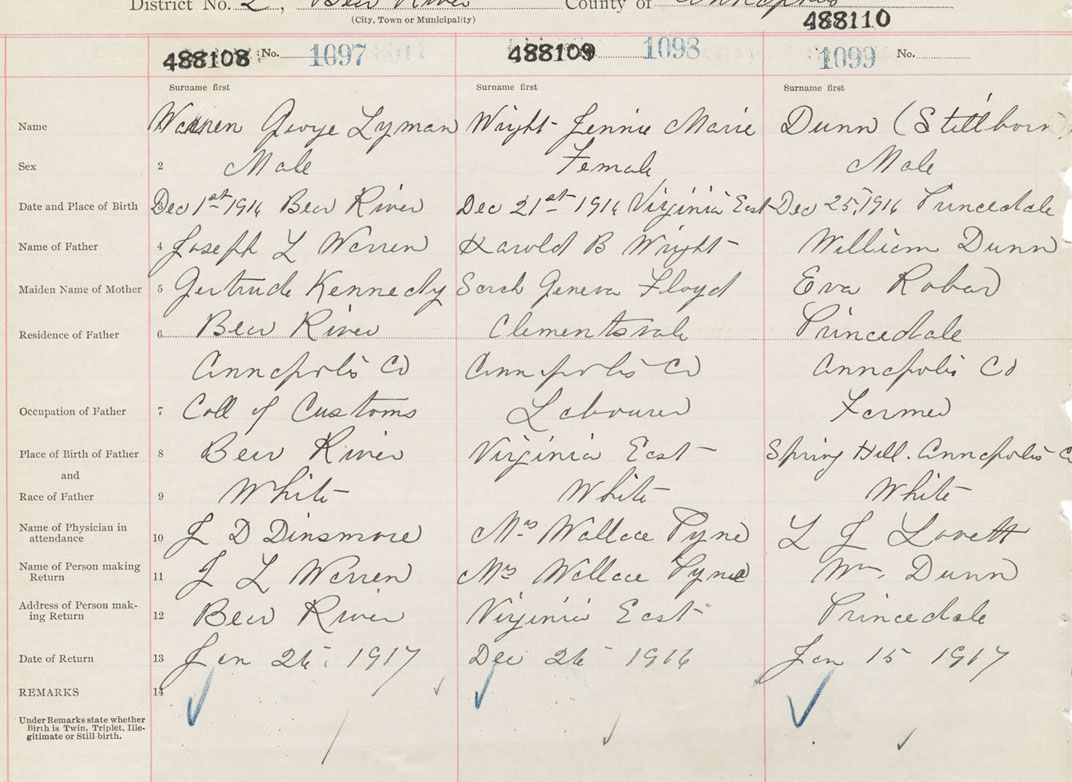 District No. 2, Bear River County of Annapolis
(City, Town or Municipality)
488108 No. 1097 488109 1098 488110 1099 No.
Surname first Surname first Surname first
Name Warren George Lyman Wright Jennie Marie Dunn (Stillborn)
Sex 2 Male Female Male
Date and Place of Birth 3 Dec 1st 1916 Bear River Dec 21st 1916 Virginia East Dec 25, 1916 Princedale
Name of Father 4 Joseph L Warren Harold B Wright William Dunn
Maiden Name of Mother 5 Gertrude Kennedy Sarah Geneva Floyd Eva Robar
Residence of Father 6 Bear River Clementsvale Princedale
Annapolis Co Annapolis Co Annapolis Co
Occupation of Father 7 Coll of Customs Labourer Farmer
Place of Birth of Father 8 Bear River Virginia East Spring Hill. Annapolis Co
and
Race of Father 9 White White White
Name of Physician in
attendance 10 J D Dinsmore Mrs Wallace Pyne L J Lovett
Name of Person making
Return 11 J L Warren Mrs Wallace Pyne Wm. Dunn
Address of Person mak-
ing Return 12 Bear River Virginia East Princedale
Date of Return 13 Jan 26, 1917 Dec 26 1916 Jan 15 1917
REMARKS 14
Under Remarks state whether
Birth is Twin, Triplet, Ille-
gitimate or Still-birth.